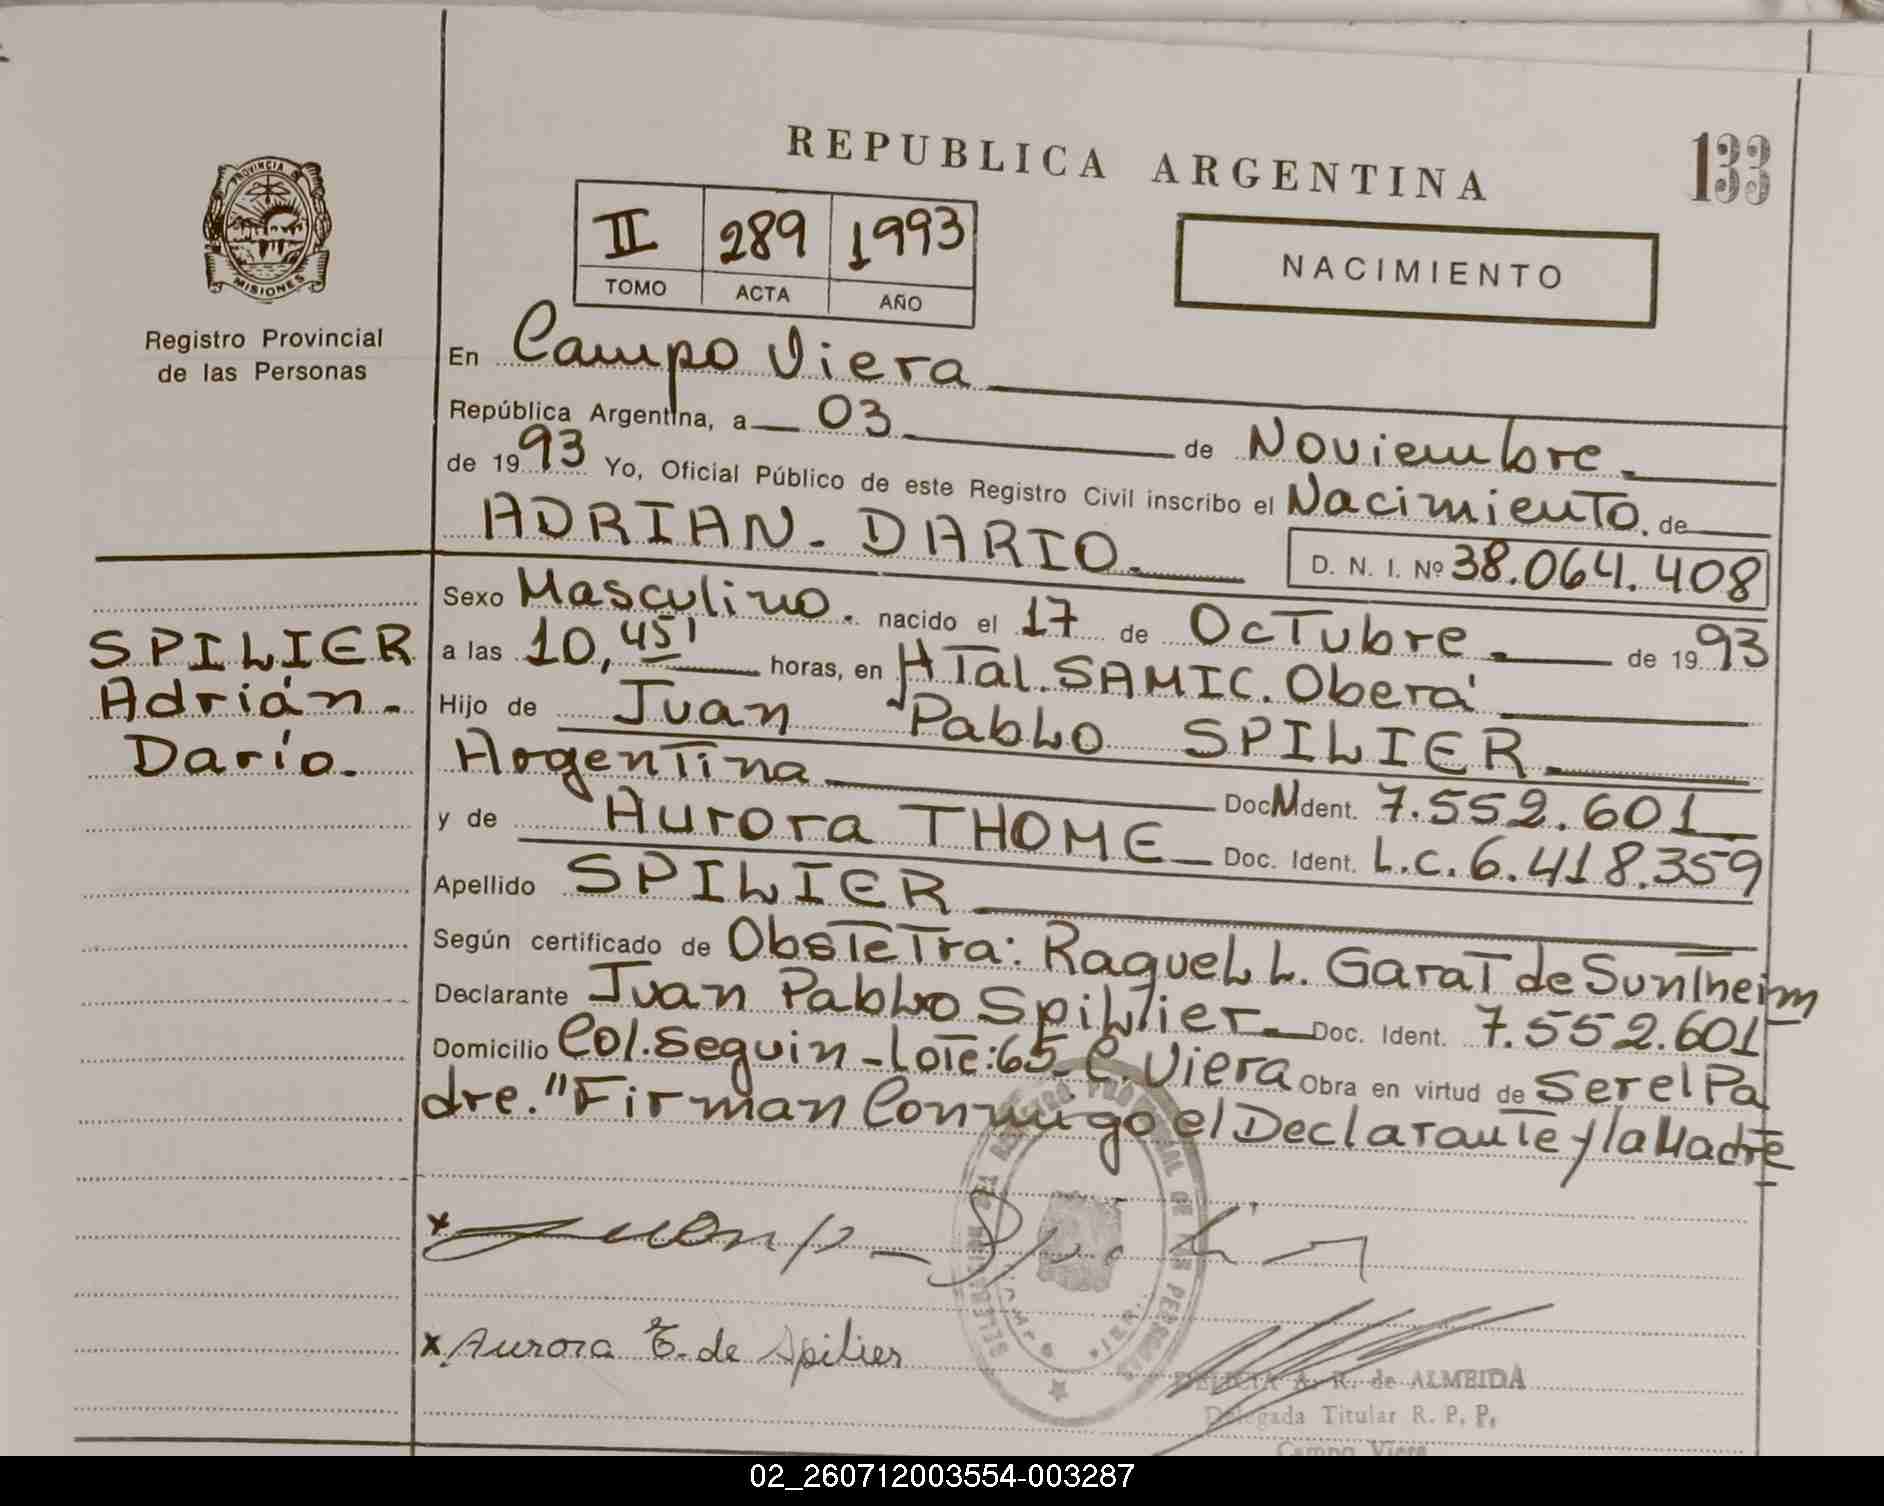 REPUBLICA ARGENTINA
133
PROVINCIA
MISIONES
Registro Provincial
de las Personas
II 289 1993
TOMO ACTA AÑO
NACIMIENTO
En Campo Viera
República Argentina, a 03 de Noviembre
de 1993 Yo, Oficial Público de este Registro Civil inscribo el Nacimiento de
ADRIAN DARIO. D. N. I. Nº 38.064.408
SPILIER
Adrián
Darío
Sexo Masculino. nacido el 17 de Octubre de 1993
a las 10,45' horas, en HTal. SAMIC. Oberá
Hijo de Juan Pablo SPILIER
Argentina Doc. Ident. 7.552.601
y de Aurora THOME Doc. Ident. L.C. 6.418.359
Apellido SPILIER
Según certificado de Obstetra: Raquel L. Garat de Suntheim
Declarante Juan Pablo Spilier Doc. Ident. 7.552.601
Domicilio Col. Seguin - Lote: 65 - C. Viera Obra en virtud de Ser el Pa
dre. "Firman Conmigo el Declarante y la Madre
x Juan P. Spilier
x Aurora T. de Spilier
DELICIA A. R. de ALMEIDA
Delegada Titular R. P. P.
Campo Viera
02_260712003554-003287